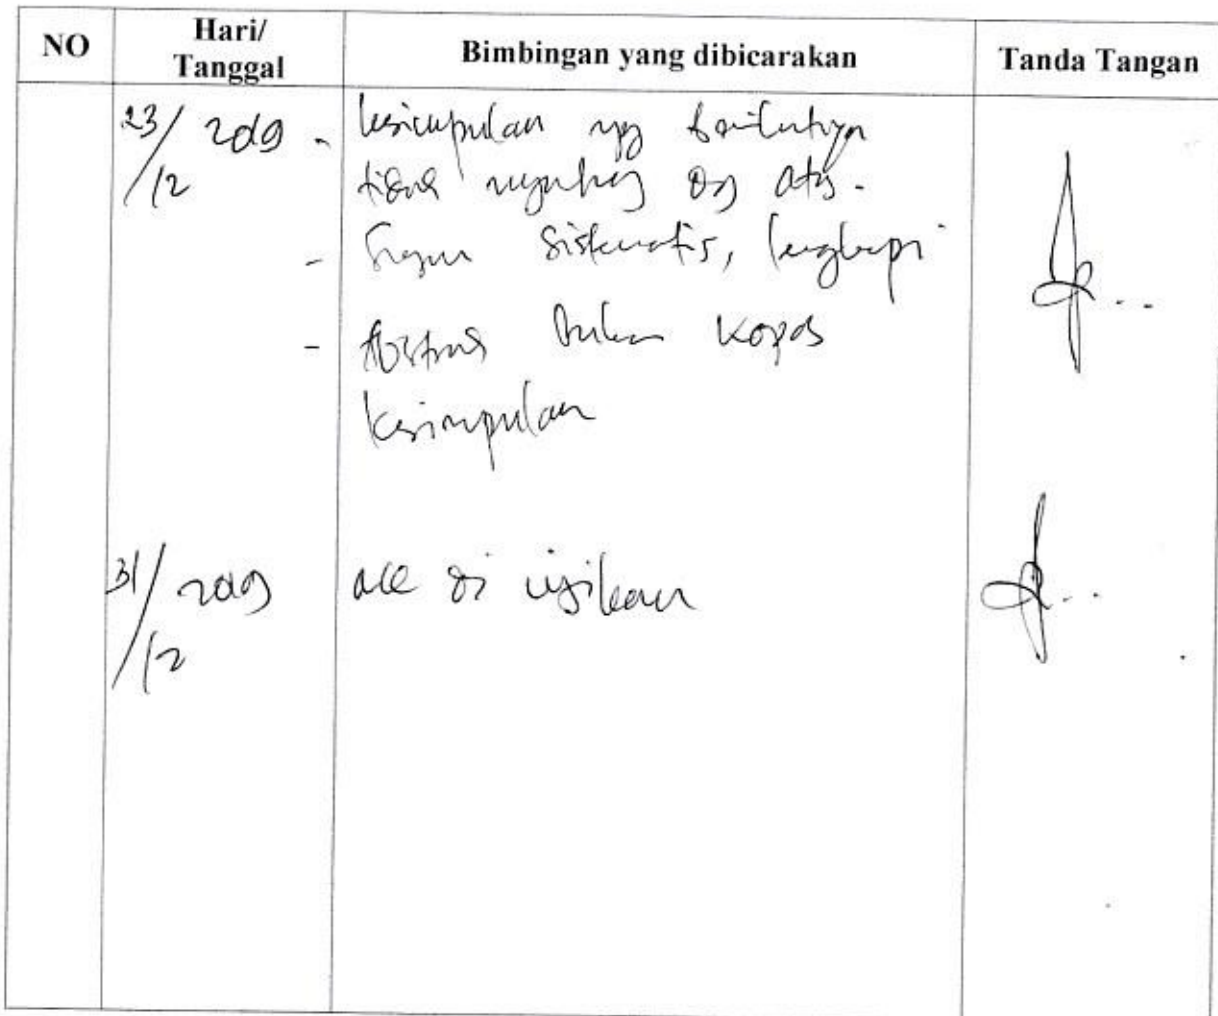 NO
Hari/
Tanggal
Bimbingan yang dibicarakan
Tanda Tangan
23/12 2019 - kesimpulan yg berikutnya
tidak nyambung dg atas.
- Susun sistematis, lengkapi
- Abstrak bukan kopas
kesimpulan
31/12 2019 acc di ujikan